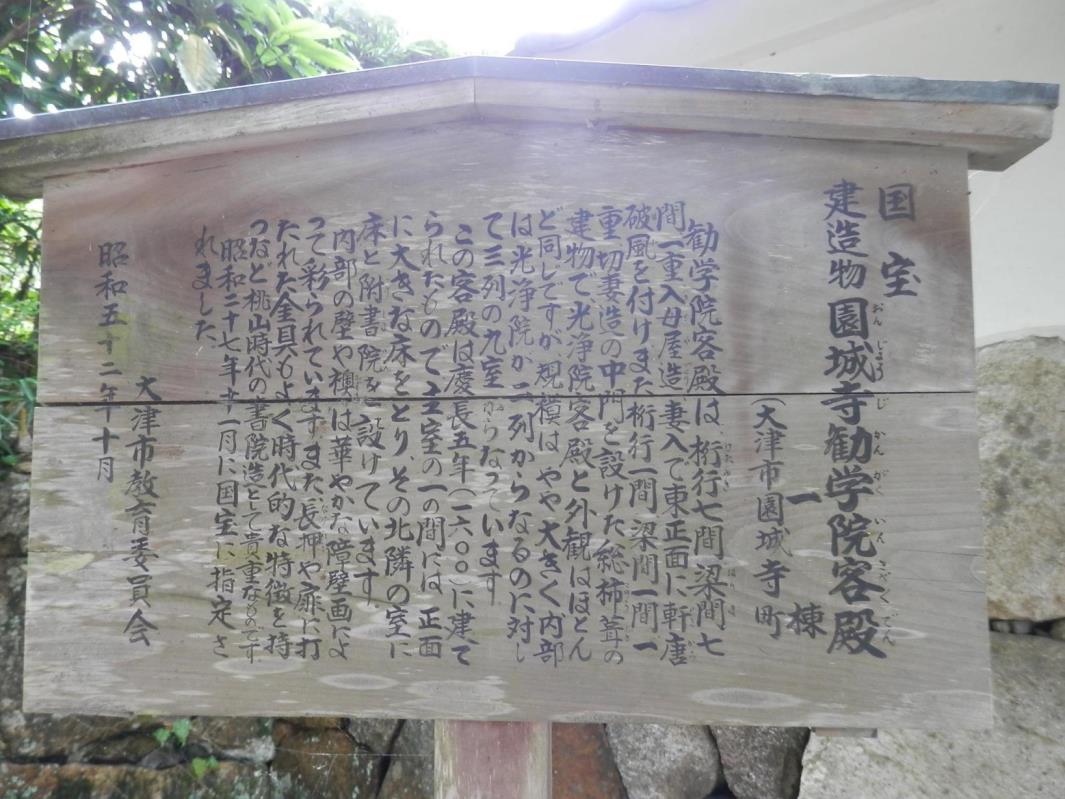 国宝
建造物 園城寺勧学院客殿
おんじょうじかんがくいんきゃくでん
一棟
(大津市園城寺町)
勧学院客殿は、桁行七間、梁間七
間、一重、入母屋造、妻入で東正面に軒唐
破風を付け、また桁行一間、梁間一間、一
重、切妻造の中門を設けた総杮葺の
建物で、光浄院客殿と外観はほとん
ど同じですが、規模はやや大きく、内部
は光浄院が二列からなるのに対し
て三列の九室からなっています。
この客殿は慶長五年(一六〇〇)に建て
られたもので、主室の一の間には、正面
に大きな床をとり、その北隣の室に
床と附書院を設けています。
内部の壁や襖は華やかな障壁画によ
って彩られています。また長押や扉に打
たれた金具もよく時代的な特徴を持
つなど桃山時代の書院造として貴重なものです。
昭和二十七年十一月に国宝に指定さ
れました。
大津市教育委員会
昭和五十二年十月